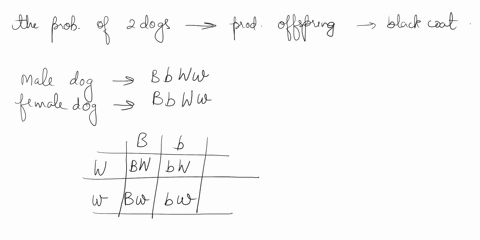 the prob. of 2 dogs → prod. offspring → black coat.
Male dog → BbWw
female dog → BbWw
B b
W BW bW
w Bw bw